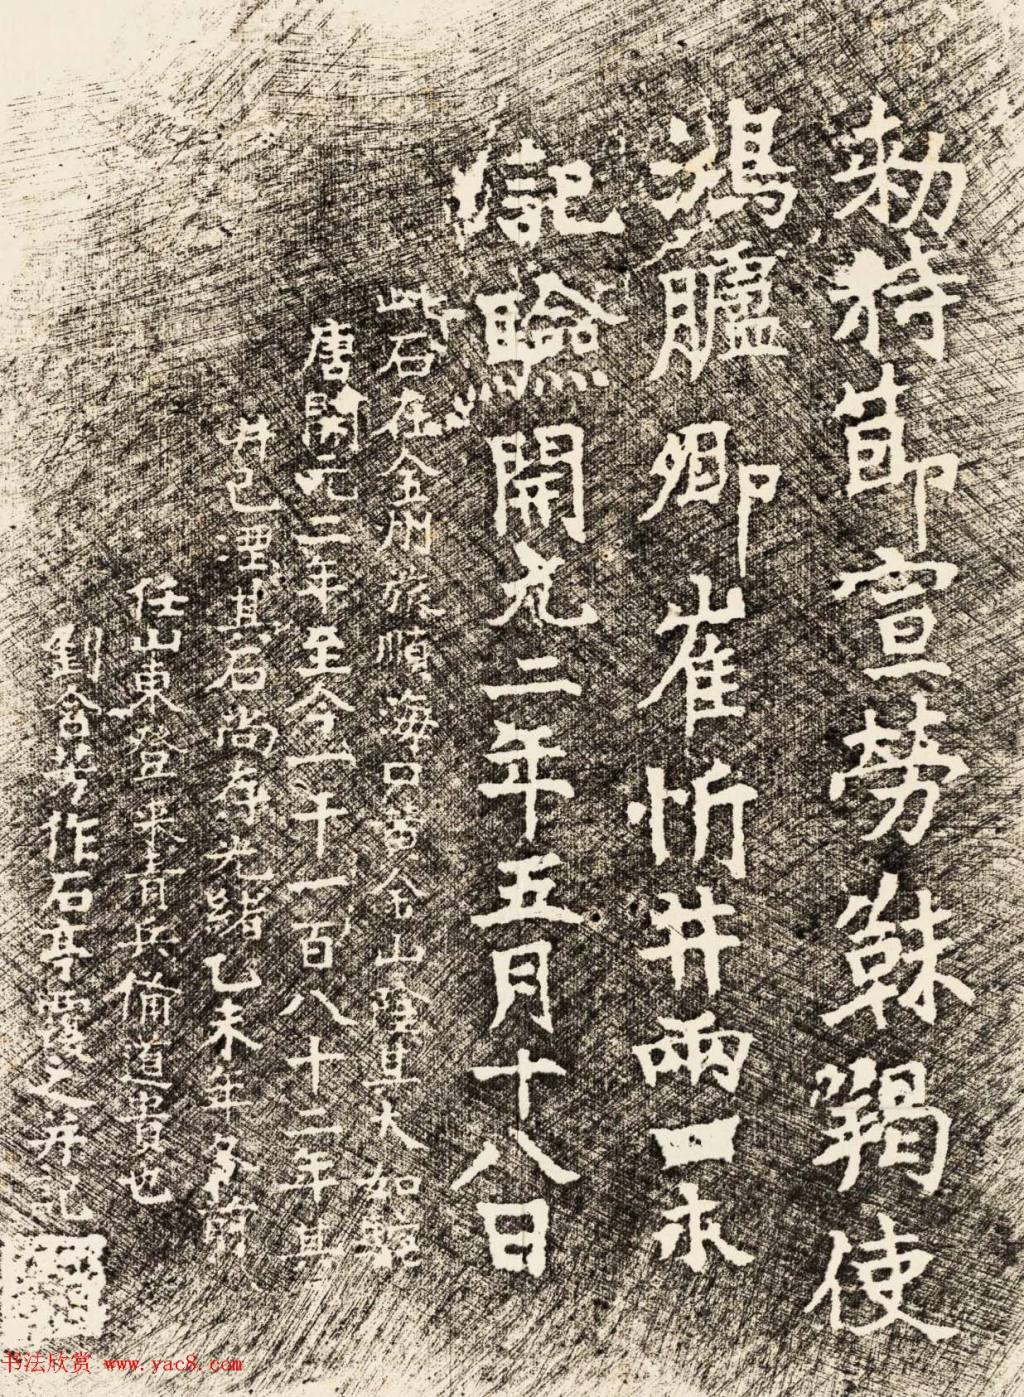 勅持節宣勞靺羯使
鴻臚卿崔忻井兩口永
記驗開元二年五月十八日
此石在金州旅順海口黃金山陰其大如駝
唐開元二年至今一千一百八十二年其
井已湮其石尚存光緒乙未年冬前
任山東登萊青兵備道貴池
劉含芳作石亭覆之并記
书法欣赏 www.yac8.com